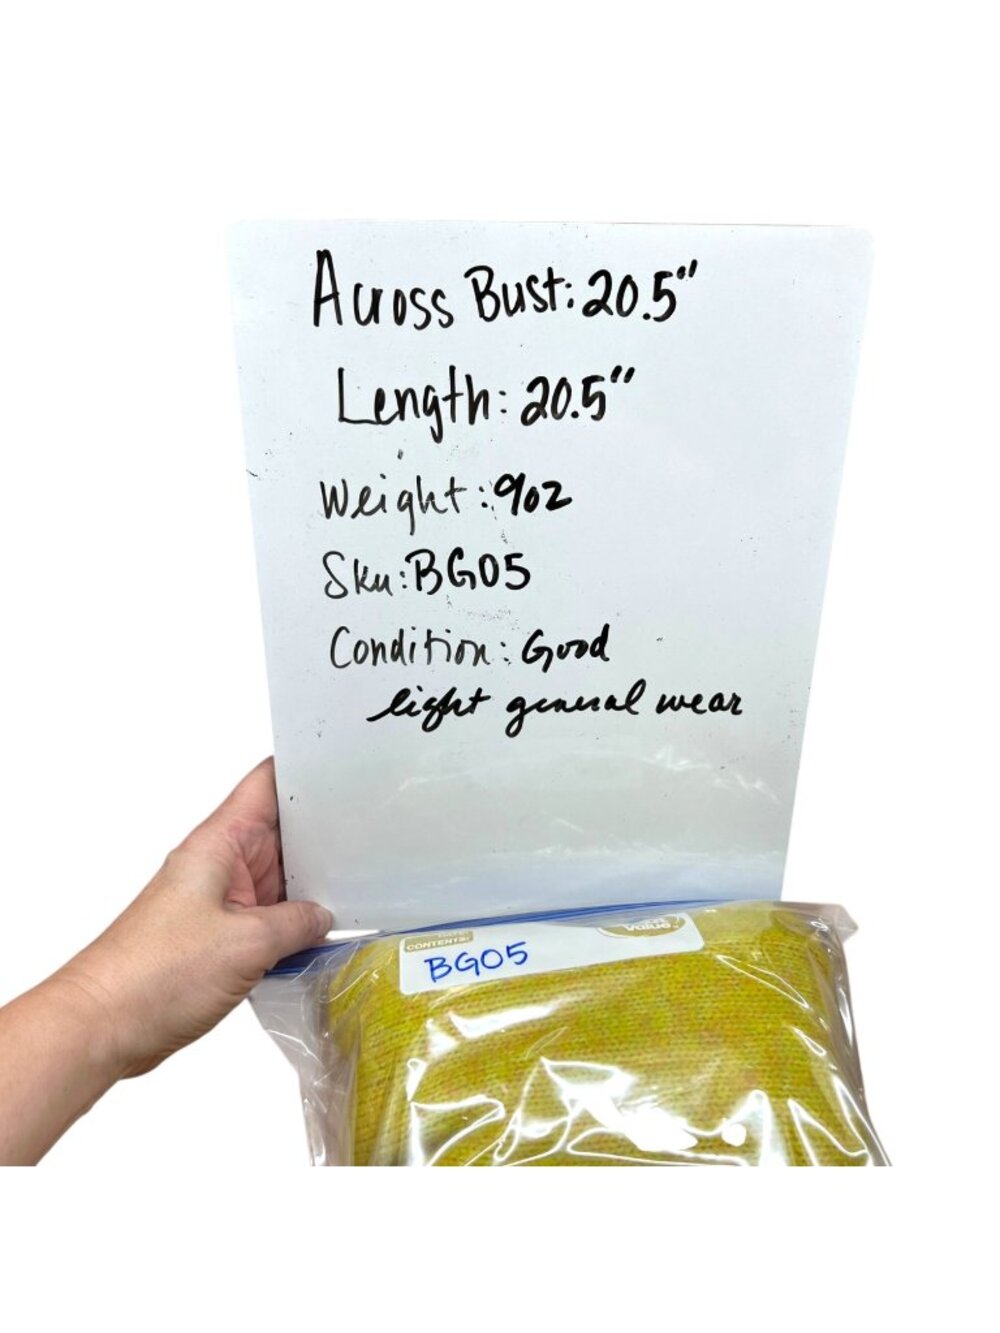 Across Bust: 20.5"
Length: 20.5"
Weight: 9oz
Sku: BG05
Condition: Good
light general wear
CONTENTS:
Value
BG05